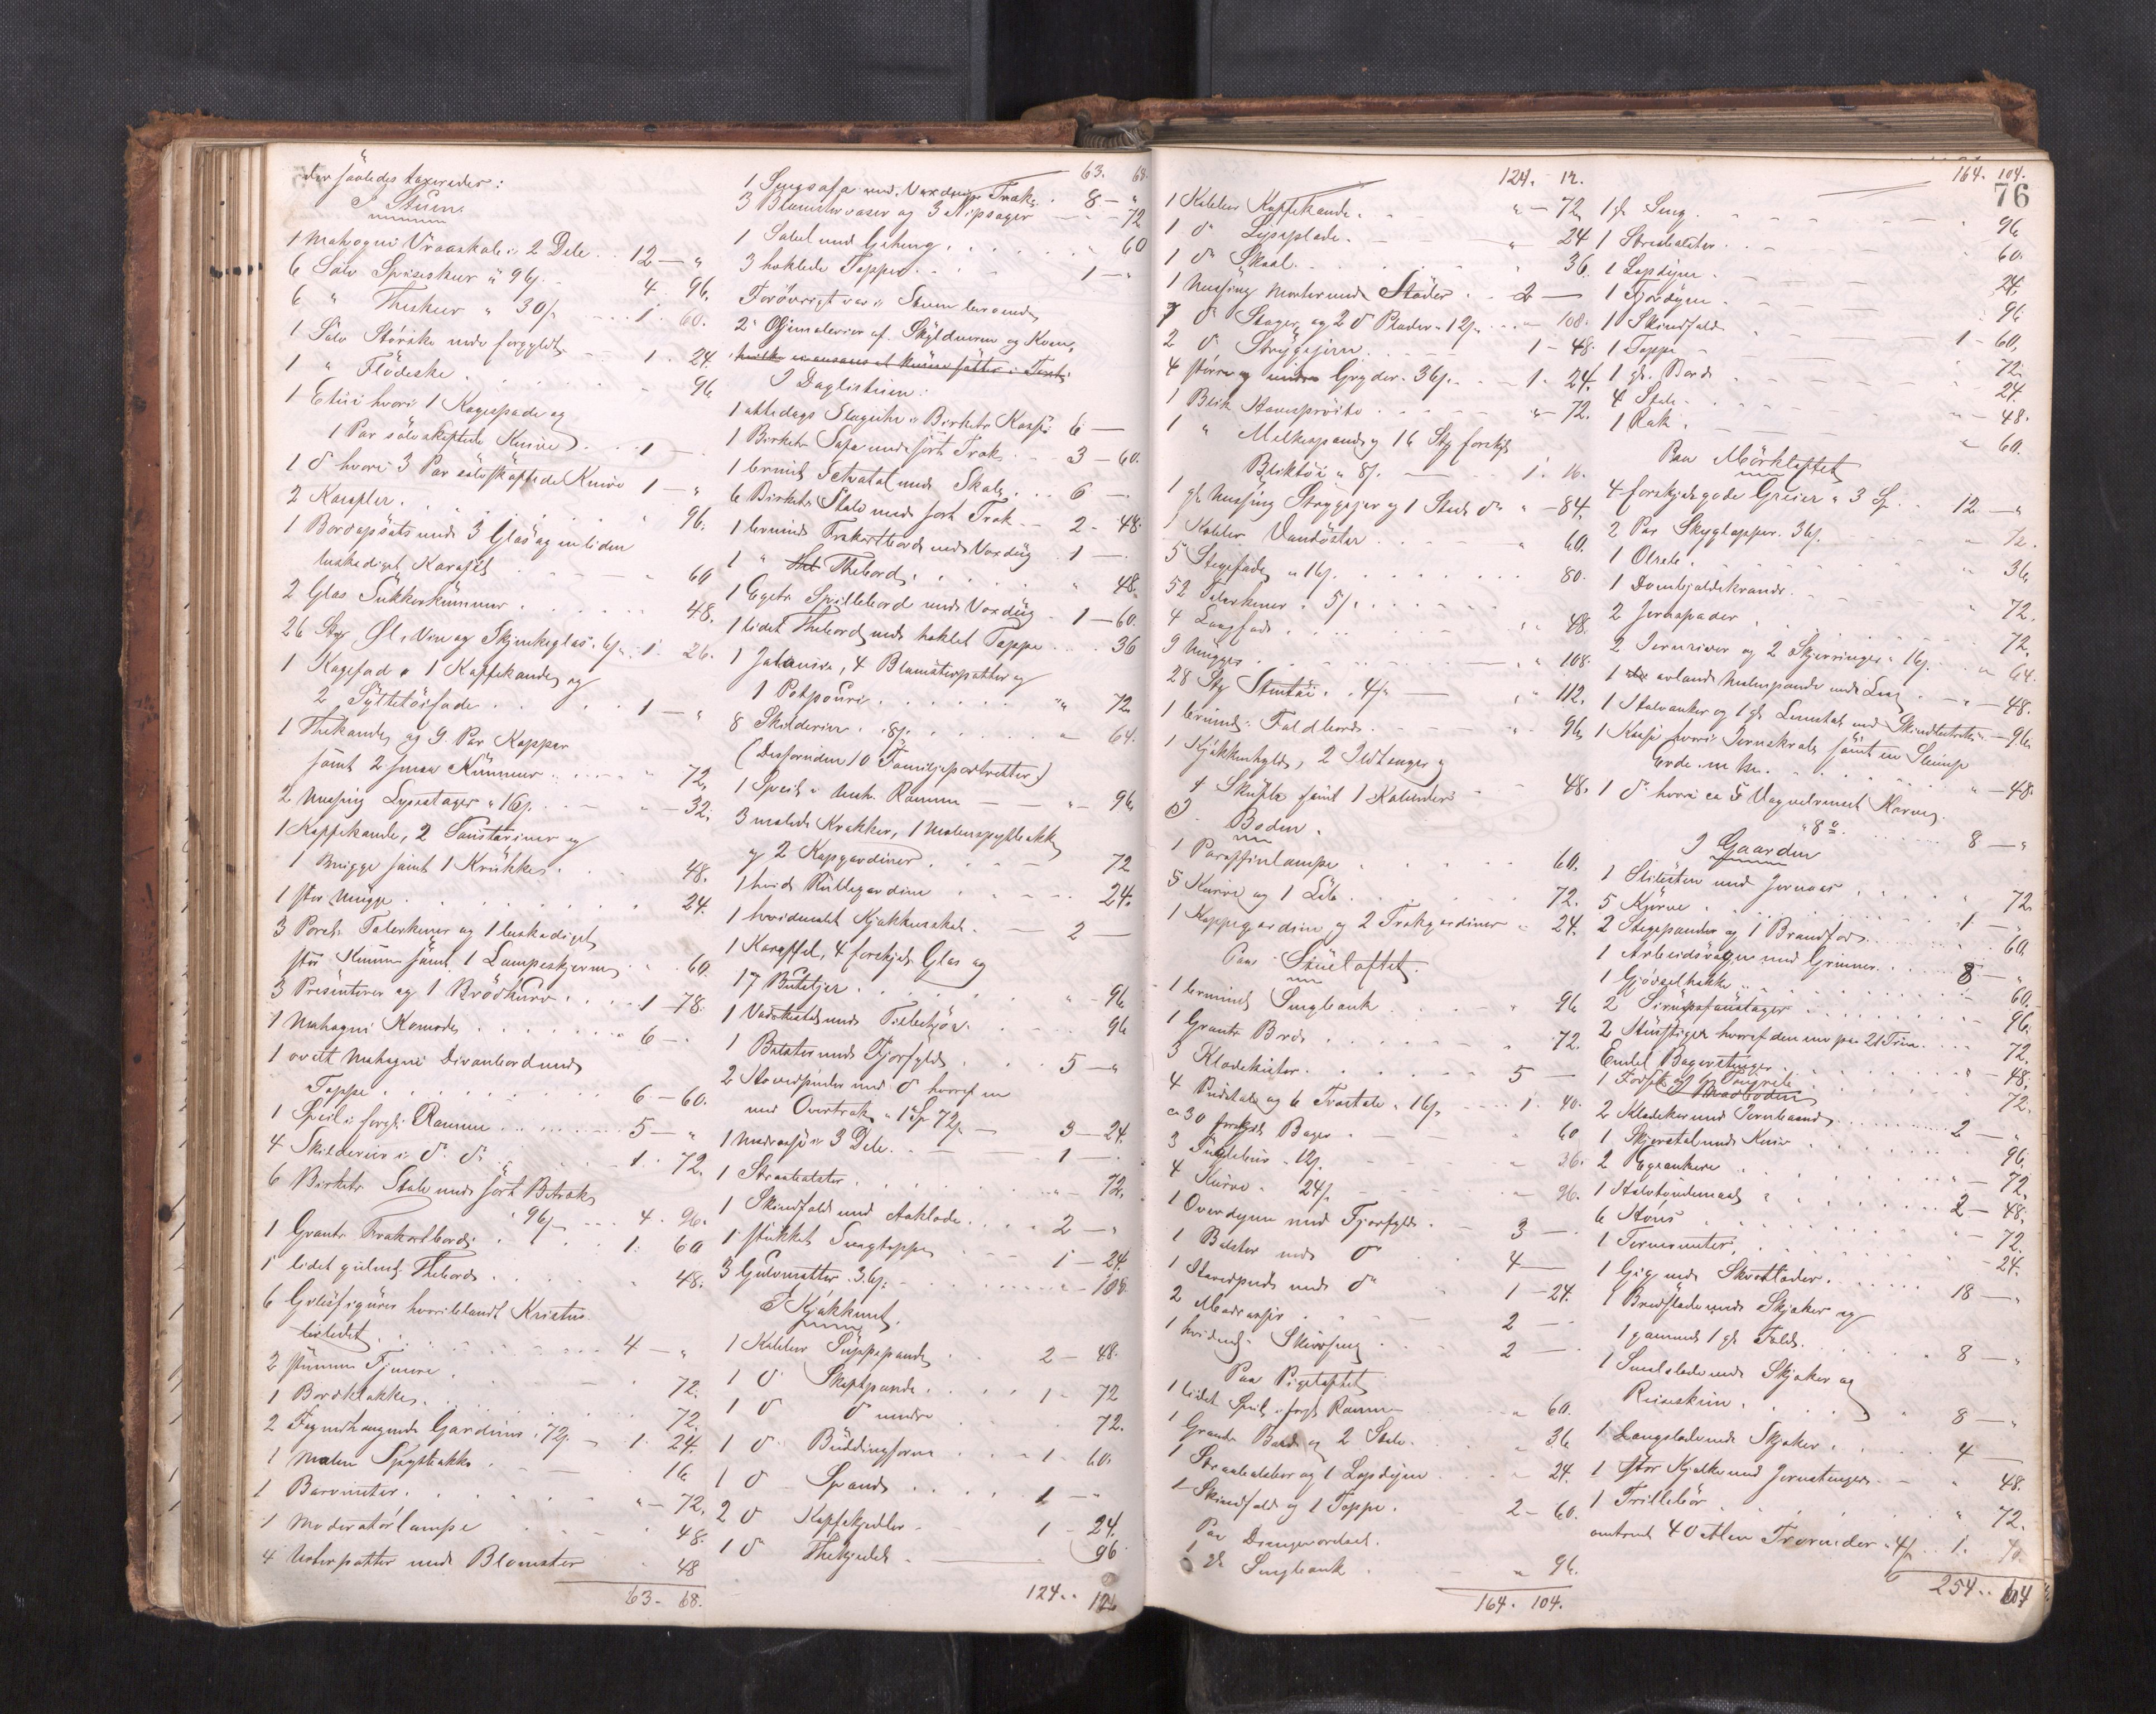 der saaledes taxeredes:
I Stuen.
1 Mahogni Vraaskab i 2 Dele .. 12 — "
6 Sølv Spiseskeer à 96ſ. - 4. 96.
6 " Theskeer " 30ſ. - - - 1. 60.
1 Sølv Strøske inde forgyldt - 1. 24.
1 " Flødeske . . . . . - 96
1 Etui hvori 1 Kagespade og
1 Par sølvskaftede Knive . . - 1 —
1 do hvori 3 Par sølvskaftede Knive 1 — "
2 Karafler . . . . . " 96.
1 Bordopsats med 3 Glas og en liden
beskadiget Karaffel - - - " 60
2 Glas Sukkerkummer . . . . . 48.
26 Stk Øl, Vin og Skjænkeglas à 6ſ " 1. 26.
1 Kagefad, 1 Kaffekande og
2 Syltetøifade . . . . . 1 — "
1 Thekande og 9 Par Kopper
samt 2 smaa Kummer . . . . 72.
2 Messing Lysestager à 16ſ. - - " - 32.
1 Kaffekande, 2 og
1 Mugge samt 1 Krukke . . . 48.
1 stor Mugge . . . . . . 24.
3 Porcl. Talerkener og 1 beskadiget
stor Kumme samt 1 Lampeskjærm . . 60.
3 Presenterer og 1 Brødkurv . . . . 1 - 78.
1 Mahogni Komode . . . . . . 6 — .
1 ovalt Mahogni Divanbord med
Teppe . . . . . . . 6 - 60.
1 Speil i forgt. Ramme . . . . . 5 — "
4 Skilderier i do do . . . . 1. 72.
6 Birketr. Stole med sort Betræk
à 96ſ - - - 4. 96.
1 Grantr. Frokostbord . . . . 1. 60
1 lidet gulmt. Thebord . . . . . . 48.
6 Gibsfigurer hvoriblandt Kristus
billedet . . . . . . . . 4 — "
2 stumme Tjenere . . . . . 72.
1 Bordklokke . . . . . . 72.
2 Fag medhængende Gardiner à 72ſ. - 1. 24.
1 malen Spyttebakke . . - - 16
1 Barometer . . . . . . " - 72.
1 Moderatørlampe . . . 48.
4 Urtepotter med Blomster - 48
63 - 68.
63. 68.
1 Sengsofa med Voxdugs Træk . 8 — "
3 Blomstervaser og 3 Nipsager - - 72
1 Sabel med Geheng . . . . . 60
3 heklede Tepper . . - - 1 — "
Forøvrigt var i Stuen beroende
2 Oljemalerier af Skyldneren og Kone,
I Daglistuen:
1 ottedags Slaguhr i Birketr. Kasse 6 —
1 Birketr. Sofa med sort Træk . - 3 - 60.
1 brunmt. Schatol med Skab . . . 6 — .
6 Birketr. Stole med sort Træk - - 2 - 48.
1 brunmt. Frokostbord med Voxdug . 1 — .
1 " Thebord . . . . . . " 48.
1 Egetr. Spillebord med Voxdug - 1 - 60.
1 lidet Thebord med heklet Teppe . . . 36
1 Jalousie, 4 Blomsterpotter og
1 Potpouri . . . . . . " 72
8 Skilderier à 8ſ. . . . . . - 64.
(Desforuden 10 Familjeportretter)
1 Speil i Mah. Ramme — — " - 96
3 malede Krakker, 1 Malenspyttebakke
og 2 Kapgardiner . . . . . 72
1 hvid Rullegardine . . . . . 24.
1 hvidmalt Kjøkkenskab . - 2 —
1 Karaffel, 4 forskjel. Glas og
17 Buteljer . . . . . . " - 96
1 Vadskestel med Tilbehør . . . . 96
1 Bolster med Fjærfyld . . . 5 — "
2 Hovedpuder med do hvoraf en
med Overtræk à 1 Sp 72ſ. — 3 - 24.
1 Madrasse i 3 Dele . . — — 1 — .
1 Straabolster . . . . . . " - 72.
1 Skindfeld med Aaklæde . . . . 2 — "
1 stukket Sengteppe . . - - - 1 - 24.
3 Gulvmatter à 36ſ. - . . . . . - 108.
I Kjøkkenet.
1 Kobber Suppespand . 2 - 48.
1 do Skaftpande . . . . . 1 - 72
1 do do mindre . . . 72.
1 do Buddingform . . . . 1 - 60.
1 do Spand . . . . . 1 — "
2 do Kaffekjedler - . 1 - 24.
1 do Thekjedel - . . 96
124. . 12
124. 12.
1 Kobber Kaffekande . . . " - 72.
1 do Lyseplade . . - - " 24
1 do Skaal . . . . . . . " 36.
1 Messing Morter med Støder . . - 2 —
7 do Stager og 2 do Plader à 12ſ. . . - 108.
2 do Strygejern . . . . . 1 - 48.
4 større og mindre Gryder à 36ſ. . . . 1. 24.
1 Blik . . . . " - 72.
1 " Melkespand og 16 Stk forskjl.
Bliktøi à 8ſ. . — 1. 16.
1 gl. Messing Strygejern og 1 Stad do " - 84.
1 Kobber Vandøser . . - - - " 60.
5 Stegefade à 16ſ. . . . . . . . 80.
52 Talerkener à 5ſ. . . . . . .
4 Langfade . . . . . . . . 48.
9 Mugger . . . . . - - - " 108.
28 Stk Stentøi à 4ſ. — " 112.
1 brunmt. Foldbord . . - - - - " 96.
1 Kjøkkenhylde, 2 Ildtænger og
4 Skuffer samt 1 - - 48.
I Boden.
1 Paraffinlampe . . . . . . . 60.
5 Kurve og 1 . . . . . . . 72.
1 Kappegardin og 2 Trækgardiner " 24.
Paa Stueloftet.
1 brunmt. Sengbænk . . . . " 96
1 Grantr. Bord . . . . . . . 72.
3 Klædekister . . . . . . 5 —
4 Pindstole og 6 Træstole à 16ſ. - - - 1. 40.
ca 30 forskjl. Bøger . - - - " 60
3 Fuglebure à 12ſ. . . . - 36.
4 Kurve . 24ſ. . . . - - 96.
1 Overdyne med Fjærfyld . - 3 — .
1 Bolster med do . . 4 —
1 Hovedpude med do . " 1 - 24.
2 Madrasser . . . . . . . 2 — .
1 hvidmt. Skuvseng . . . 2 — .
Paa Pigeloftet
1 lidet Speil i forgt. Ramme . . " 60.
1 Grantr. Bord og 2 Stole . . . 36
1 Straabolster og 1 Lopdyne . . . " 24.
1 Skindfeld og 1 Teppe . . 2 - 60.
Paa Drengeværelset.
1 gl. Sengbænk . . . . . " 96.
164. 104.
164. 104.
76
1 gl. Seng . . - - - - - - - 96
1 Straabolster . . . . . . . . 60.
1 Lopdyne . . - - - - - - - 24.
1 Fjærdyne . - - - - - - - 96
1 Skindfeld . - - - - - - 1 - 60.
1 Teppe - . . . . . . . . 72.
1 gl. Bord . . . . . . . . . 24.
4 Stole . . - - - - - - - " - 48.
1 Rok . . - - - - - - - " 60.
Paa Mørkloftet
4 forskjel. gode Greier à 3 Sp . . 12 — "
2 Par Skyglapper à 36ſ. . . . . " 72.
1 Olrede . . . . . . . . . . 36
1 Dombjeldekrands . . . . . . 72.
2 Jernspader . . . . . . . . 72.
2 Jernriver og 2 Skjæringer à 16ſ. . . . 64.
1 avlands Malenpande med Laag . - " - 48.
1 Halvanker og 1 gl. Lænestol med Skindbetræk - 96.
1 Kasse hvori Jernskrab samt en Slump
Erde m. m. . . . . . . " - 48.
1 do hvori ca 5 Vogvel renset Korn
à 8 . . . . . . 8 — "
I Gaarden
1 Slibesten med Jernaas . . . . . 72.
5 Kjørne . . . . . . . . . 1 — "
2 Stegepander og 1 Brandfod . . . . . . 60.
1 Arbeidsvogn med Grinner . . . . . 8 — "
1 Gjødselhakke . . . . . . . . . " - 60.
2 Sirupsfustager . . . . . . . 96.
2 Stuestiger hvoraf den ene paa 21 Trin . . . 72.
Endel Bagerstænger . . . . . . " - 48.
1 . . . . . . 72.
2 Klædekar med Jernbaand . . . . . . 2 — "
1 Skjærestol med Kniv . . . . . . . 96.
2 . . . . . . . " - 72.
1 Halvtøndemaal . . . . . . . 2 - 48.
6 Høns . . . . . . . . - 72.
1 . . . . . . . . . - 24.
1 Gig med Skvætlæder . . . . . 18 — "
1 Bredslæde med Skjæker og
1 gammel 1 gl. Feld . . . . . . 8 — "
1 Smalslæde med Skjæker og
Reinskind . . . . . " 8 — "
1 Langslæde med Skjæker . . . . 4 —
1 stor Kjælke med Jernstænger . . - 48.
1 Trillebør . . . . . . . " 72.
omtrent 40 Alen Trærender à 4ſ. . . 1. 40.
254. . 104